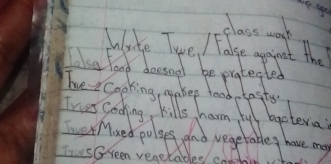 class work
Write True/False against the
False Food doesnot be protected
True Cooking makes food tasty.
True Cooking kills harmful bacteria
True Mixed pulses and vegetables have
True Green vegetables